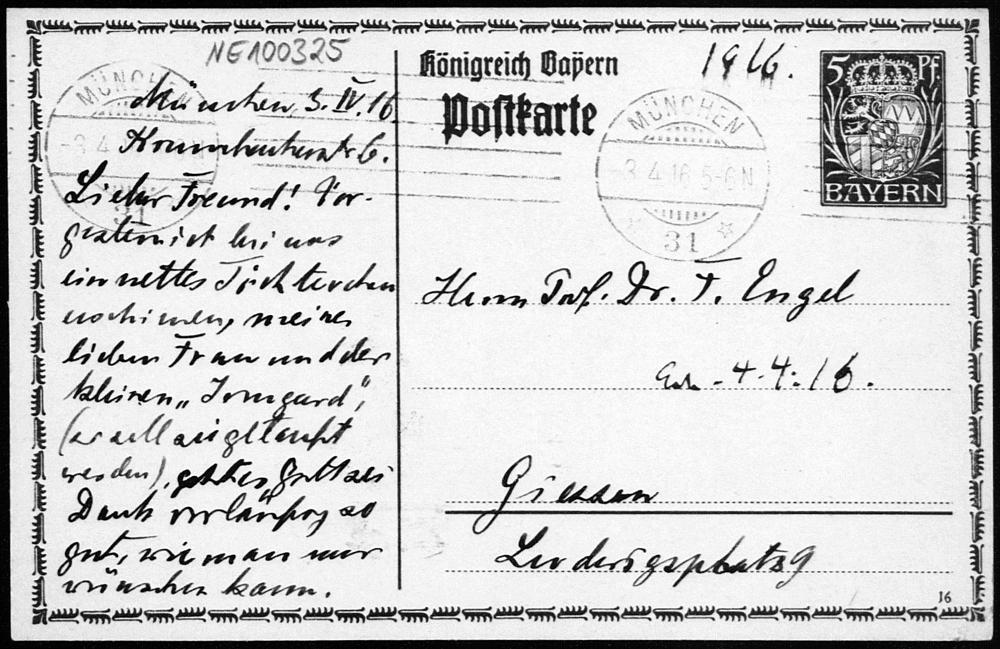 NE100325
München, 3. IV. 16.
Lieber Freund! Vor-
gestern ist bei uns
ein nettes Töchterchen
erschienen, meiner
lieben Frau und der
kleinen „Irmgard“,
(so soll sie getauft
werden), geht es Gott sei
Dank vorläufig so
gut, wie man nur
wünschen kann.
Königreich Bayern
Postkarte
1916.
5 Pf.
BAYERN
MÜNCHEN
-3 4
31
MÜNCHEN
-3 4 16 5-6 N
31
Herrn Prof. Dr. F. Engel
4.4.16.
Giessen
Ludwigsplatz 9
16